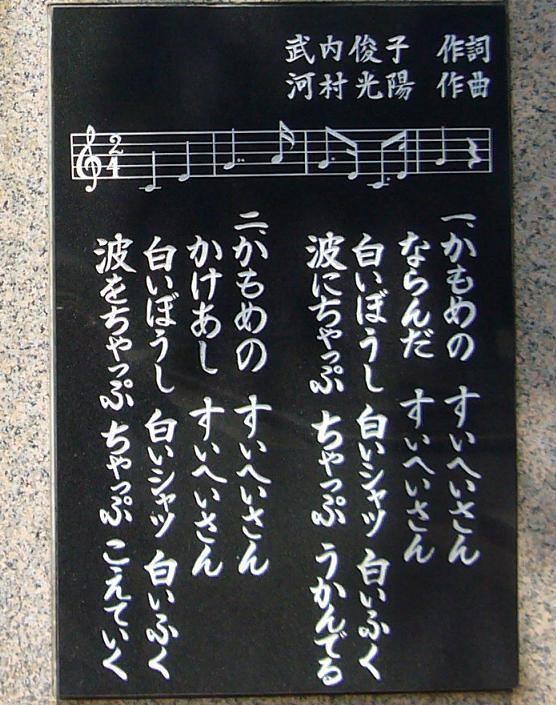 武内俊子 作詞
河村光陽 作曲
2
4
一、かもめの すいへいさん
ならんだ すいへいさん
白いぼうし 白いシャツ 白いふく
波にちゃっぷ ちゃっぷ うかんでる
二、かもめの すいへいさん
かけあし すいへいさん
白いぼうし 白いシャツ 白いふく
波をちゃっぷ ちゃっぷ こえていく